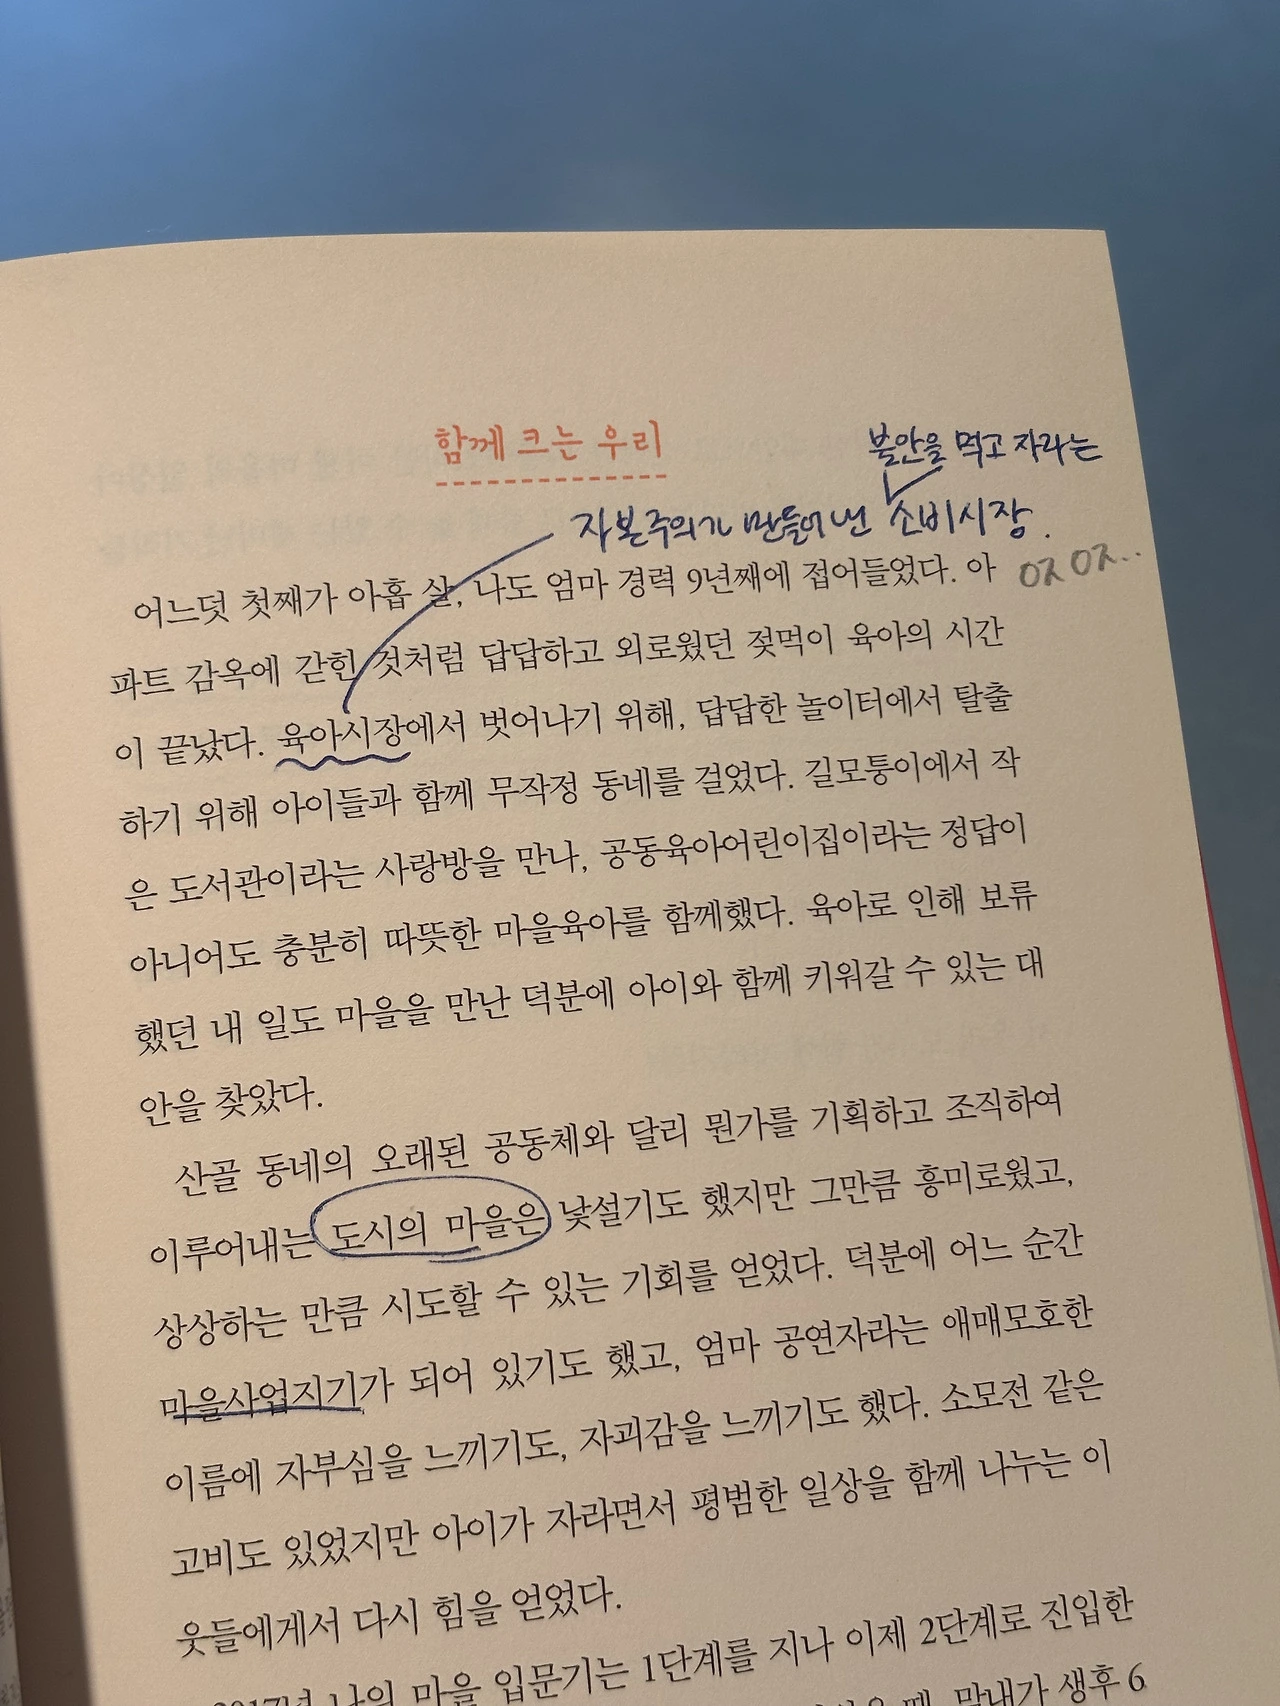 함께 크는 우리
불안을 먹고 자라는
자본주의가 만들어 낸 소비시장.
어느덧 첫째가 아홉 살, 나도 엄마 경력 9년째에 접어들었다. 아
ㅇㅈㅇㅈ...
파트 감옥에 갇힌 것처럼 답답하고 외로웠던 젖먹이 육아의 시간
이 끝났다. 육아시장에서 벗어나기 위해, 답답한 놀이터에서 탈출
하기 위해 아이들과 함께 무작정 동네를 걸었다. 길모퉁이에서 작
은 도서관이라는 사랑방을 만나, 공동육아어린이집이라는 정답이
아니어도 충분히 따뜻한 마을육아를 함께했다. 육아로 인해 보류
했던 내 일도 마을을 만난 덕분에 아이와 함께 키워갈 수 있는 대
안을 찾았다.
산골 동네의 오래된 공동체와 달리 뭔가를 기획하고 조직하여
이루어내는 도시의 마을은 낯설기도 했지만 그만큼 흥미로웠고,
상상하는 만큼 시도할 수 있는 기회를 얻었다. 덕분에 어느 순간
마을사업지기가 되어 있기도 했고, 엄마 공연자라는 애매모호한
이름에 자부심을 느끼기도, 자괴감을 느끼기도 했다. 소모전 같은
고비도 있었지만 아이가 자라면서 평범한 일상을 함께 나누는 이
웃들에게서 다시 힘을 얻었다.
2017년 나의 마을 입문기는 1단계를 지나 이제 2단계로 진입한
때, 막내가 생후 6